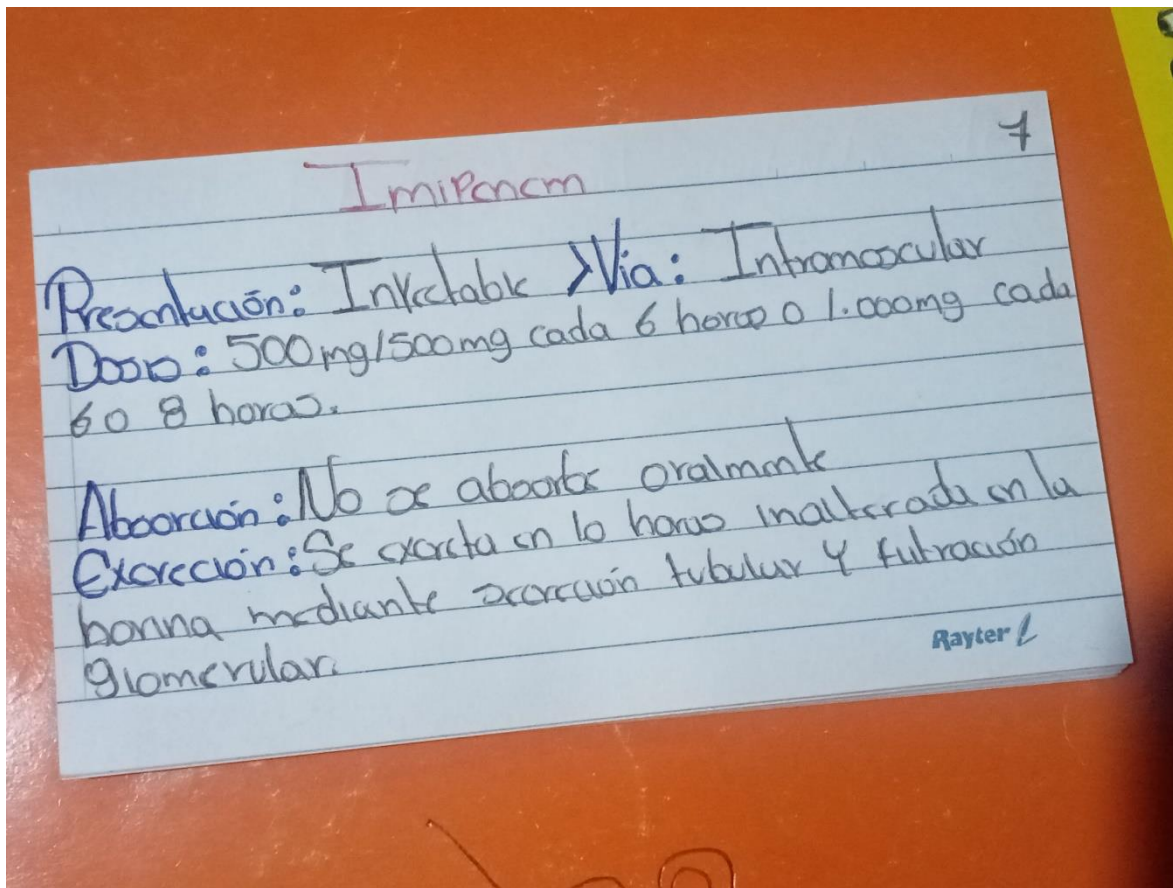 7
Imipenem
Presentación: Inyectable >Via: Intramuscular
Dosis: 500mg/500mg cada 6 horas o 1.000mg cada
6 o 8 horas.
Absorción: No se absorbe oralmente
Excreción: Se excreta en 10 horas inalterada en la
horina mediante secreción tubular y filtración
glomerular.
Rayter